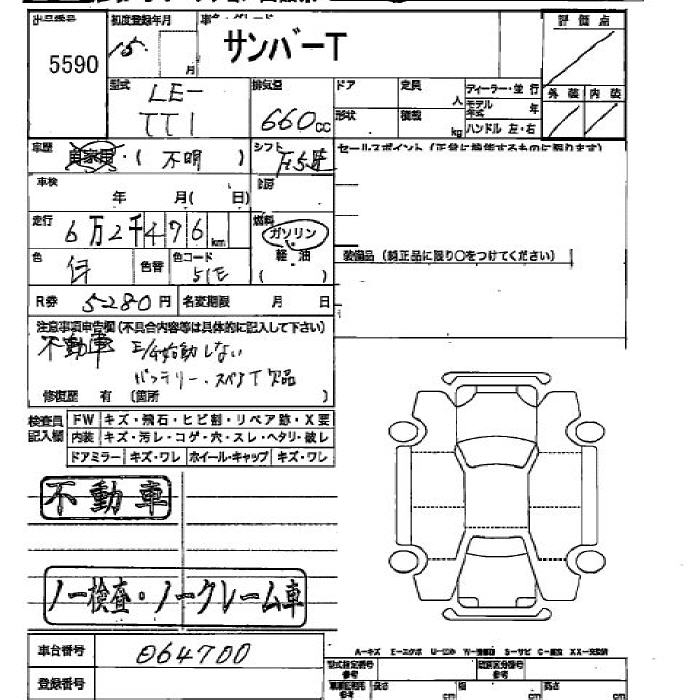 出品番号 初度登録年月 車名・グレード 評価点
5590 15. 月 サンバーT
型式 排気量 ドア 定員 ディーラー・並行 外装 内装
LE- 人 モデル年式 年
TT1 660cc 形状 積載 kg ハンドル 左・右
車歴 自家用・(不明) シフト F5速 セールスポイント(正常に機能するものに限ります)
車検 年 月( 日) 冷房
走行 6万2千476km 燃料 ガソリン
色 色替 色コード 51E 軽油 ( ) 装備品(純正品に限り○をつけてください)
R券 5280円 名変期限 月 日
注意事項申告欄(不具合内容等は具体的に記入して下さい)
不動車 E/G始動しない
バッテリー、スペアT欠品
修復歴 有 (箇所 )
検査員記入欄 FW キズ・飛石・ヒビ割・リペア跡・X要
内装 キズ・汚レ・コゲ・穴・スレ・ヘタリ・破レ
ドアミラー キズ・ワレ ホイール・キャップ キズ・ワレ
不動車
ノー検査・ノークレーム車
車台番号 064700
A-キズ E-エクボ U-凹み S-サビ C-腐食 XX-交換済
登録番号 型式指定番号 参考 類別区分番号 参考
長さ cm 幅 cm 高さ cm